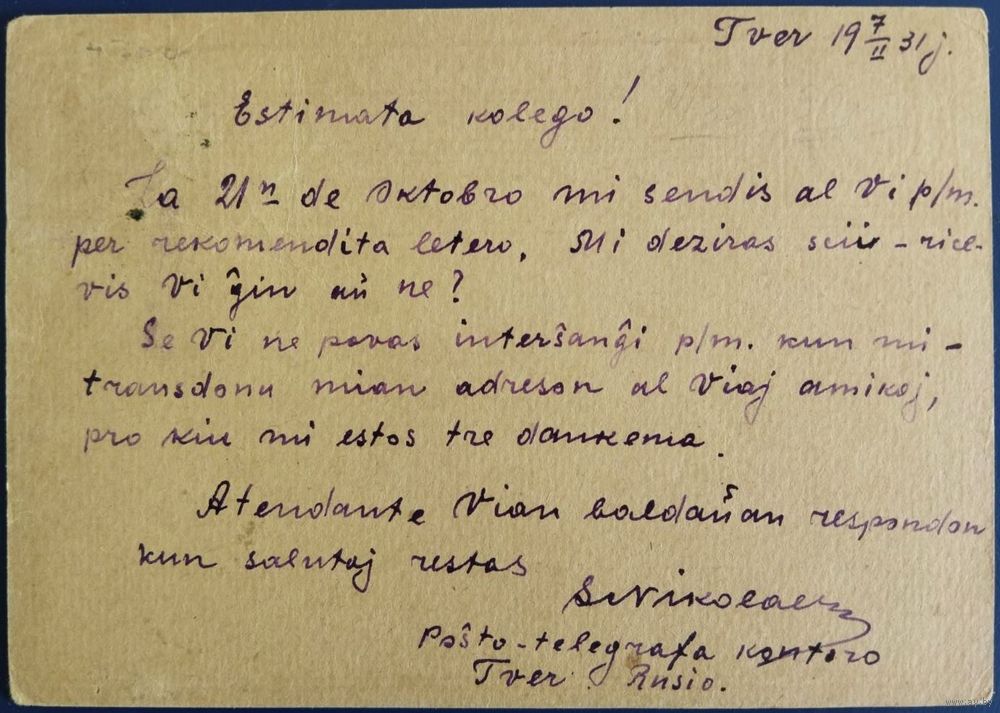 Tver 19 7/II 31 j.
Estimata kolego!
La 21n de Oktobro mi sendis al Vi p/m.
per rekomendita letero. Mi deziras scii - rice-
vis Vi ĝin aŭ ne?
Se Vi ne povas interŝanĝi p/m. kun mi -
transdonu mian adreson al Viaj amikoj,
pro kiu mi estos tre dankema.
Atendante Vian baldaŭan respondon
kun salutoj restas
Poŝto-telegrafa kontoro
Tver. Rusio.